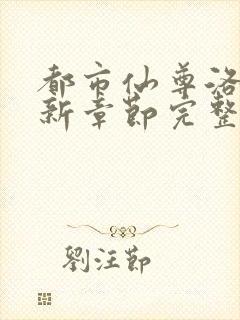 都市仙尊洛
新章節完整
劉汪節